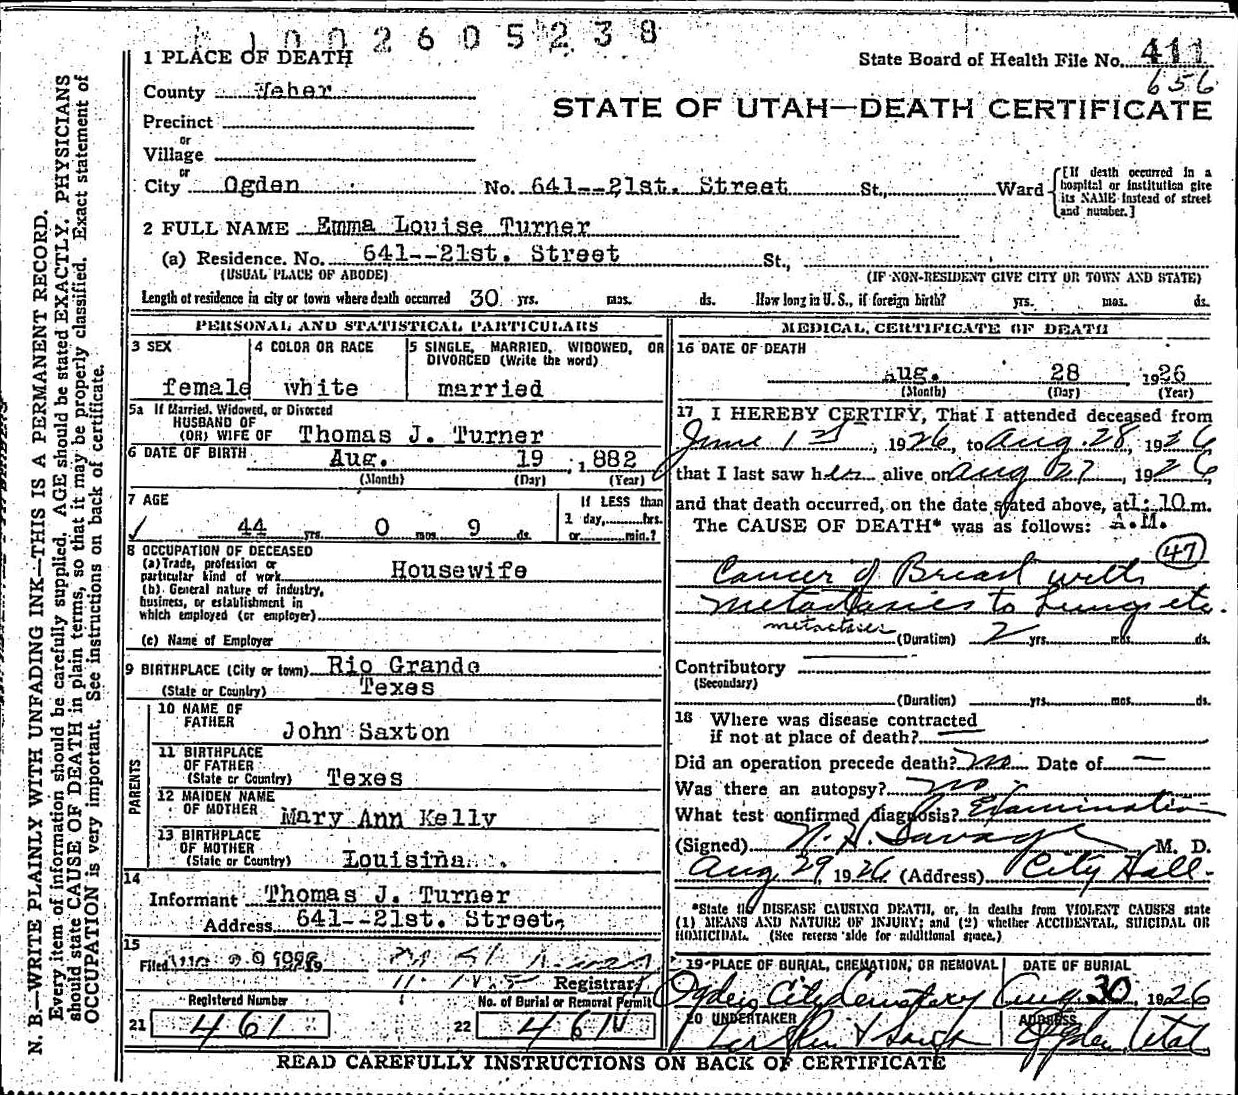 1002605238
1 PLACE OF DEATH
State Board of Health File No. 411
656
County Weber
STATE OF UTAH—DEATH CERTIFICATE
Precinct
or
Village
or
City Ogden No. 641--21st. Street St., Ward
[If death occurred in a hospital or institution give its NAME instead of street and number.]
2 FULL NAME Emma Louise Turner
(a) Residence. No. 641--21st. Street St.,
(USUAL PLACE OF ABODE) (IF NON-RESIDENT GIVE CITY OR TOWN AND STATE)
Length of residence in city or town where death occurred 30 yrs. mos. ds. How long in U. S., if foreign birth? yrs. mos. ds.
PERSONAL AND STATISTICAL PARTICULARS
3 SEX
female
4 COLOR OR RACE
white
5 SINGLE, MARRIED, WIDOWED, OR
DIVORCED (Write the word)
married
5a If Married, Widowed, or Divorced
HUSBAND OF
(OR) WIFE OF Thomas J. Turner
6 DATE OF BIRTH Aug. 19, 1882
(Month) (Day) (Year)
7 AGE
44 yrs. 0 mos. 9 ds.
If LESS than
1 day, hrs.
or min.?
8 OCCUPATION OF DECEASED
(a) Trade, profession or
particular kind of work Housewife
(b) General nature of industry,
business, or establishment in
which employed (or employer)
(c) Name of Employer
9 BIRTHPLACE (City or town) Rio Grande
(State or Country) Texes
PARENTS
10 NAME OF
FATHER
John Saxton
11 BIRTHPLACE
OF FATHER
(State or Country) Texes
12 MAIDEN NAME
OF MOTHER
Mary Ann Kelly
13 BIRTHPLACE
OF MOTHER
(State or Country) Louisina
14
Informant Thomas J. Turner
Address 641--21st. Street,
15
Filed
Registrar
Registered Number
21 461
No. of Burial or Removal Permit
22 461
MEDICAL CERTIFICATE OF DEATH
16 DATE OF DEATH
Aug. 28 1926
(Month) (Day) (Year)
17 I HEREBY CERTIFY, That I attended deceased from
June 1st, 1926, to Aug. 28, 1926
that I last saw her alive on Aug 27, 1926,
and that death occurred, on the date stated above, at 1:10 m.
The CAUSE OF DEATH* was as follows: A.M.
47
Cancer of Breast with
Metastasies to Lungs etc.
metastasies
(Duration) 2 yrs. mos. ds.
Contributory
(Secondary)
(Duration) yrs. mos. ds.
18 Where was disease contracted
if not at place of death?
Did an operation precede death? no Date of —
Was there an autopsy? no
What test confirmed diagnosis? Examination
(Signed) H. Savage M. D.
Aug 29, 1926 (Address) City Hall.
*State the DISEASE CAUSING DEATH, or, in deaths from VIOLENT CAUSES state
(1) MEANS AND NATURE OF INJURY; and (2) whether ACCIDENTAL, SUICIDAL OR
HOMICIDAL. (See reverse side for additional space.)
19 PLACE OF BURIAL, CREMATION, OR REMOVAL
Ogden City Cemetary
DATE OF BURIAL
Aug. 30, 1926
20 UNDERTAKER
ADDRESS
Ogden, Utah
READ CAREFULLY INSTRUCTIONS ON BACK OF CERTIFICATE
N. B.—WRITE PLAINLY WITH UNFADING INK—THIS IS A PERMANENT RECORD.
Every item of information should be carefully supplied. AGE should be stated EXACTLY. PHYSICIANS
should state CAUSE OF DEATH in plain terms, so that it may be properly classified. Exact statement of
OCCUPATION is very important. See instructions on back of certificate.